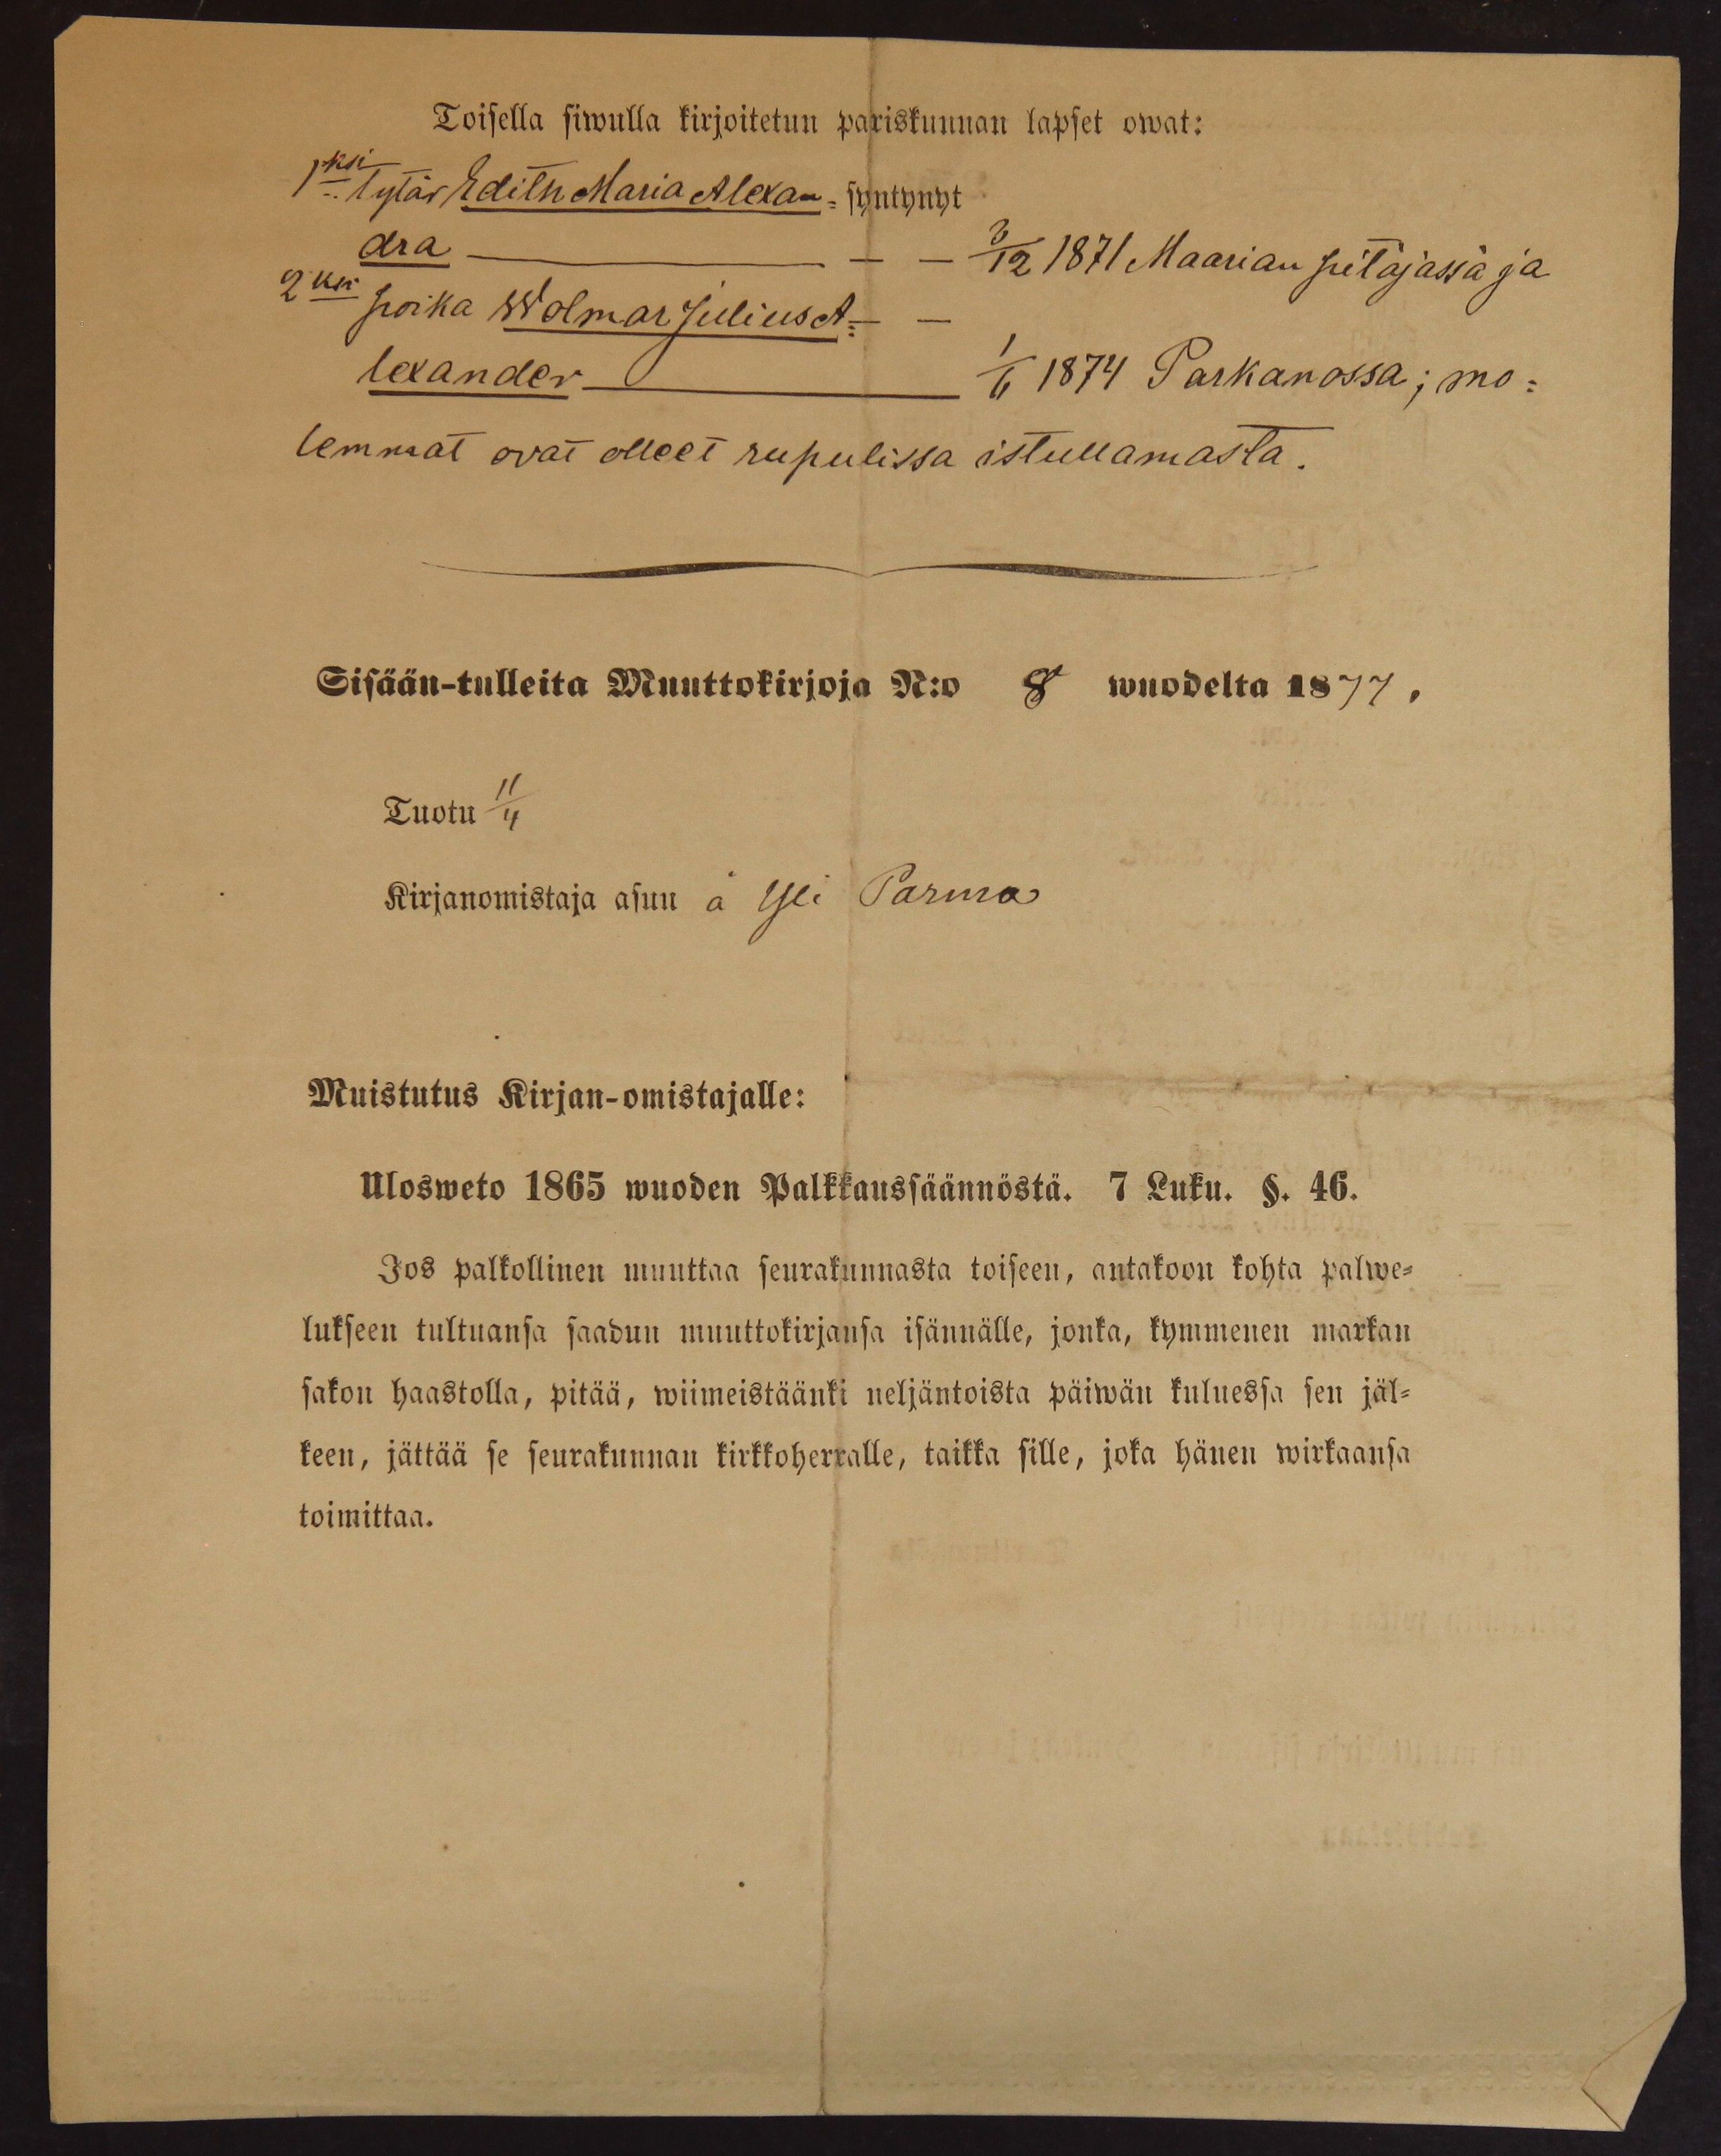 Toisella siwulla kirjoitetun pariskunnan lapset owat:
1ksi Tytär Edith Maria Alexan= syntynyt
dra — — — 3/12 1871 Maarian pitäjässä ja
2ksi poika Wolmar Julius A= — —
lexander — 1/6 1874 Parkanossa; mo=
lemmat ovat olleet rupulissa istullamasta.
Sisään-tulleita Muuttokirjoja N:o 8 wuodelta 1877.
Tuotu 11/4
Kirjanomistaja asuu å Yli Parma
Muistutus Kirjan-omistajalle:
Ulosweto 1865 wuoden Palkkaussäännöstä. 7 Luku. §. 46.
Jos palkollinen muuttaa seurakunnasta toiseen, antakoon kohta palwe=
lukseen tultuansa saadun muuttokirjansa isännälle, jonka, kymmenen markan
sakon haastolla, pitää, wiimeistäänki neljäntoista päiwän kuluessa sen jäl=
keen, jättää se seurakunnan kirkkoherralle, taikka sille, joka hänen wirkaansa
toimittaa.